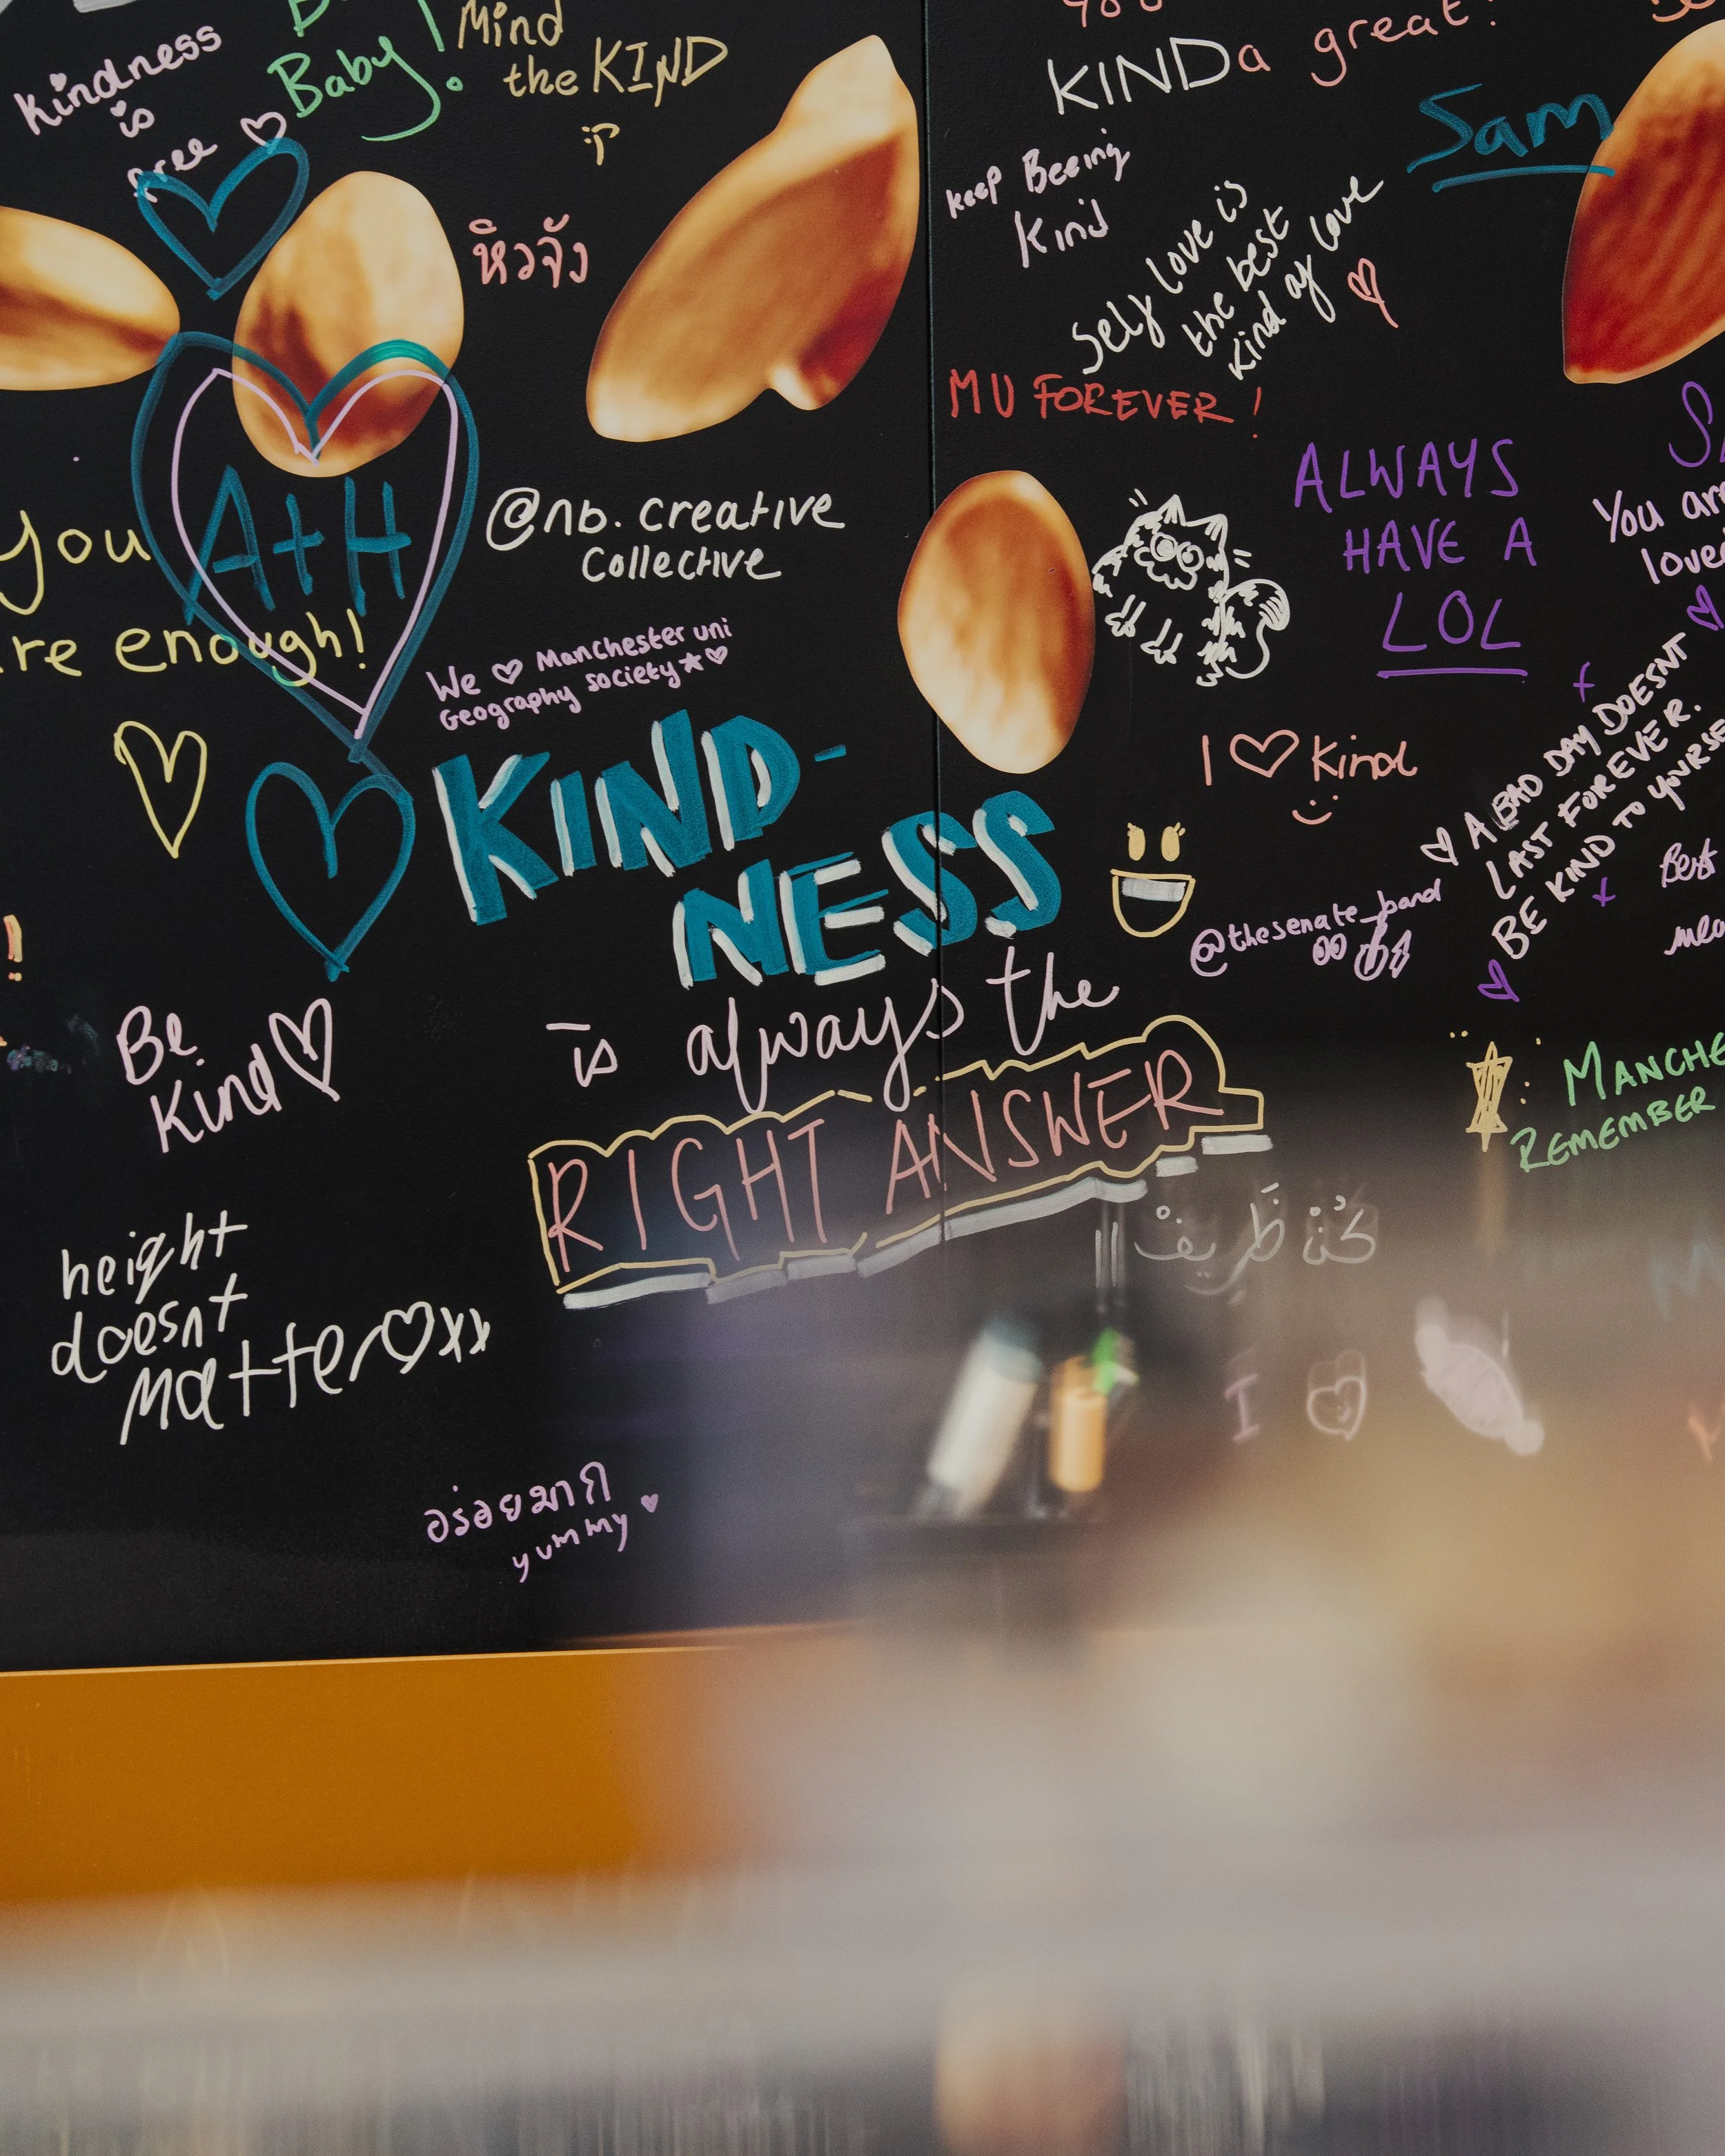 Kindness
is
free
Baby!
Mind
the KIND
KINDa great!
Sam
keep Beeing
Kind
Self love is
the best
kind of love
หิวจัง
MU FOREVER!
ALWAYS
HAVE A
LOL
You are
loved
A+H
you
are enough!
@nb.creative
collective
We ♡ Manchester uni
Geography society★♡
KIND-
NESS
is always the
RIGHT ANSWER
I ♡ kind
A BAD DAY DOESNT
LAST FOREVER.
BE KIND TO YOURSE
@thesenate_band
Best
Be
Kind♡
MANCHE
REMEMBER
كُنْ ظَرِيفْ
height
doesnt
Matter♡xx
I
อร่อยมาก
yummy